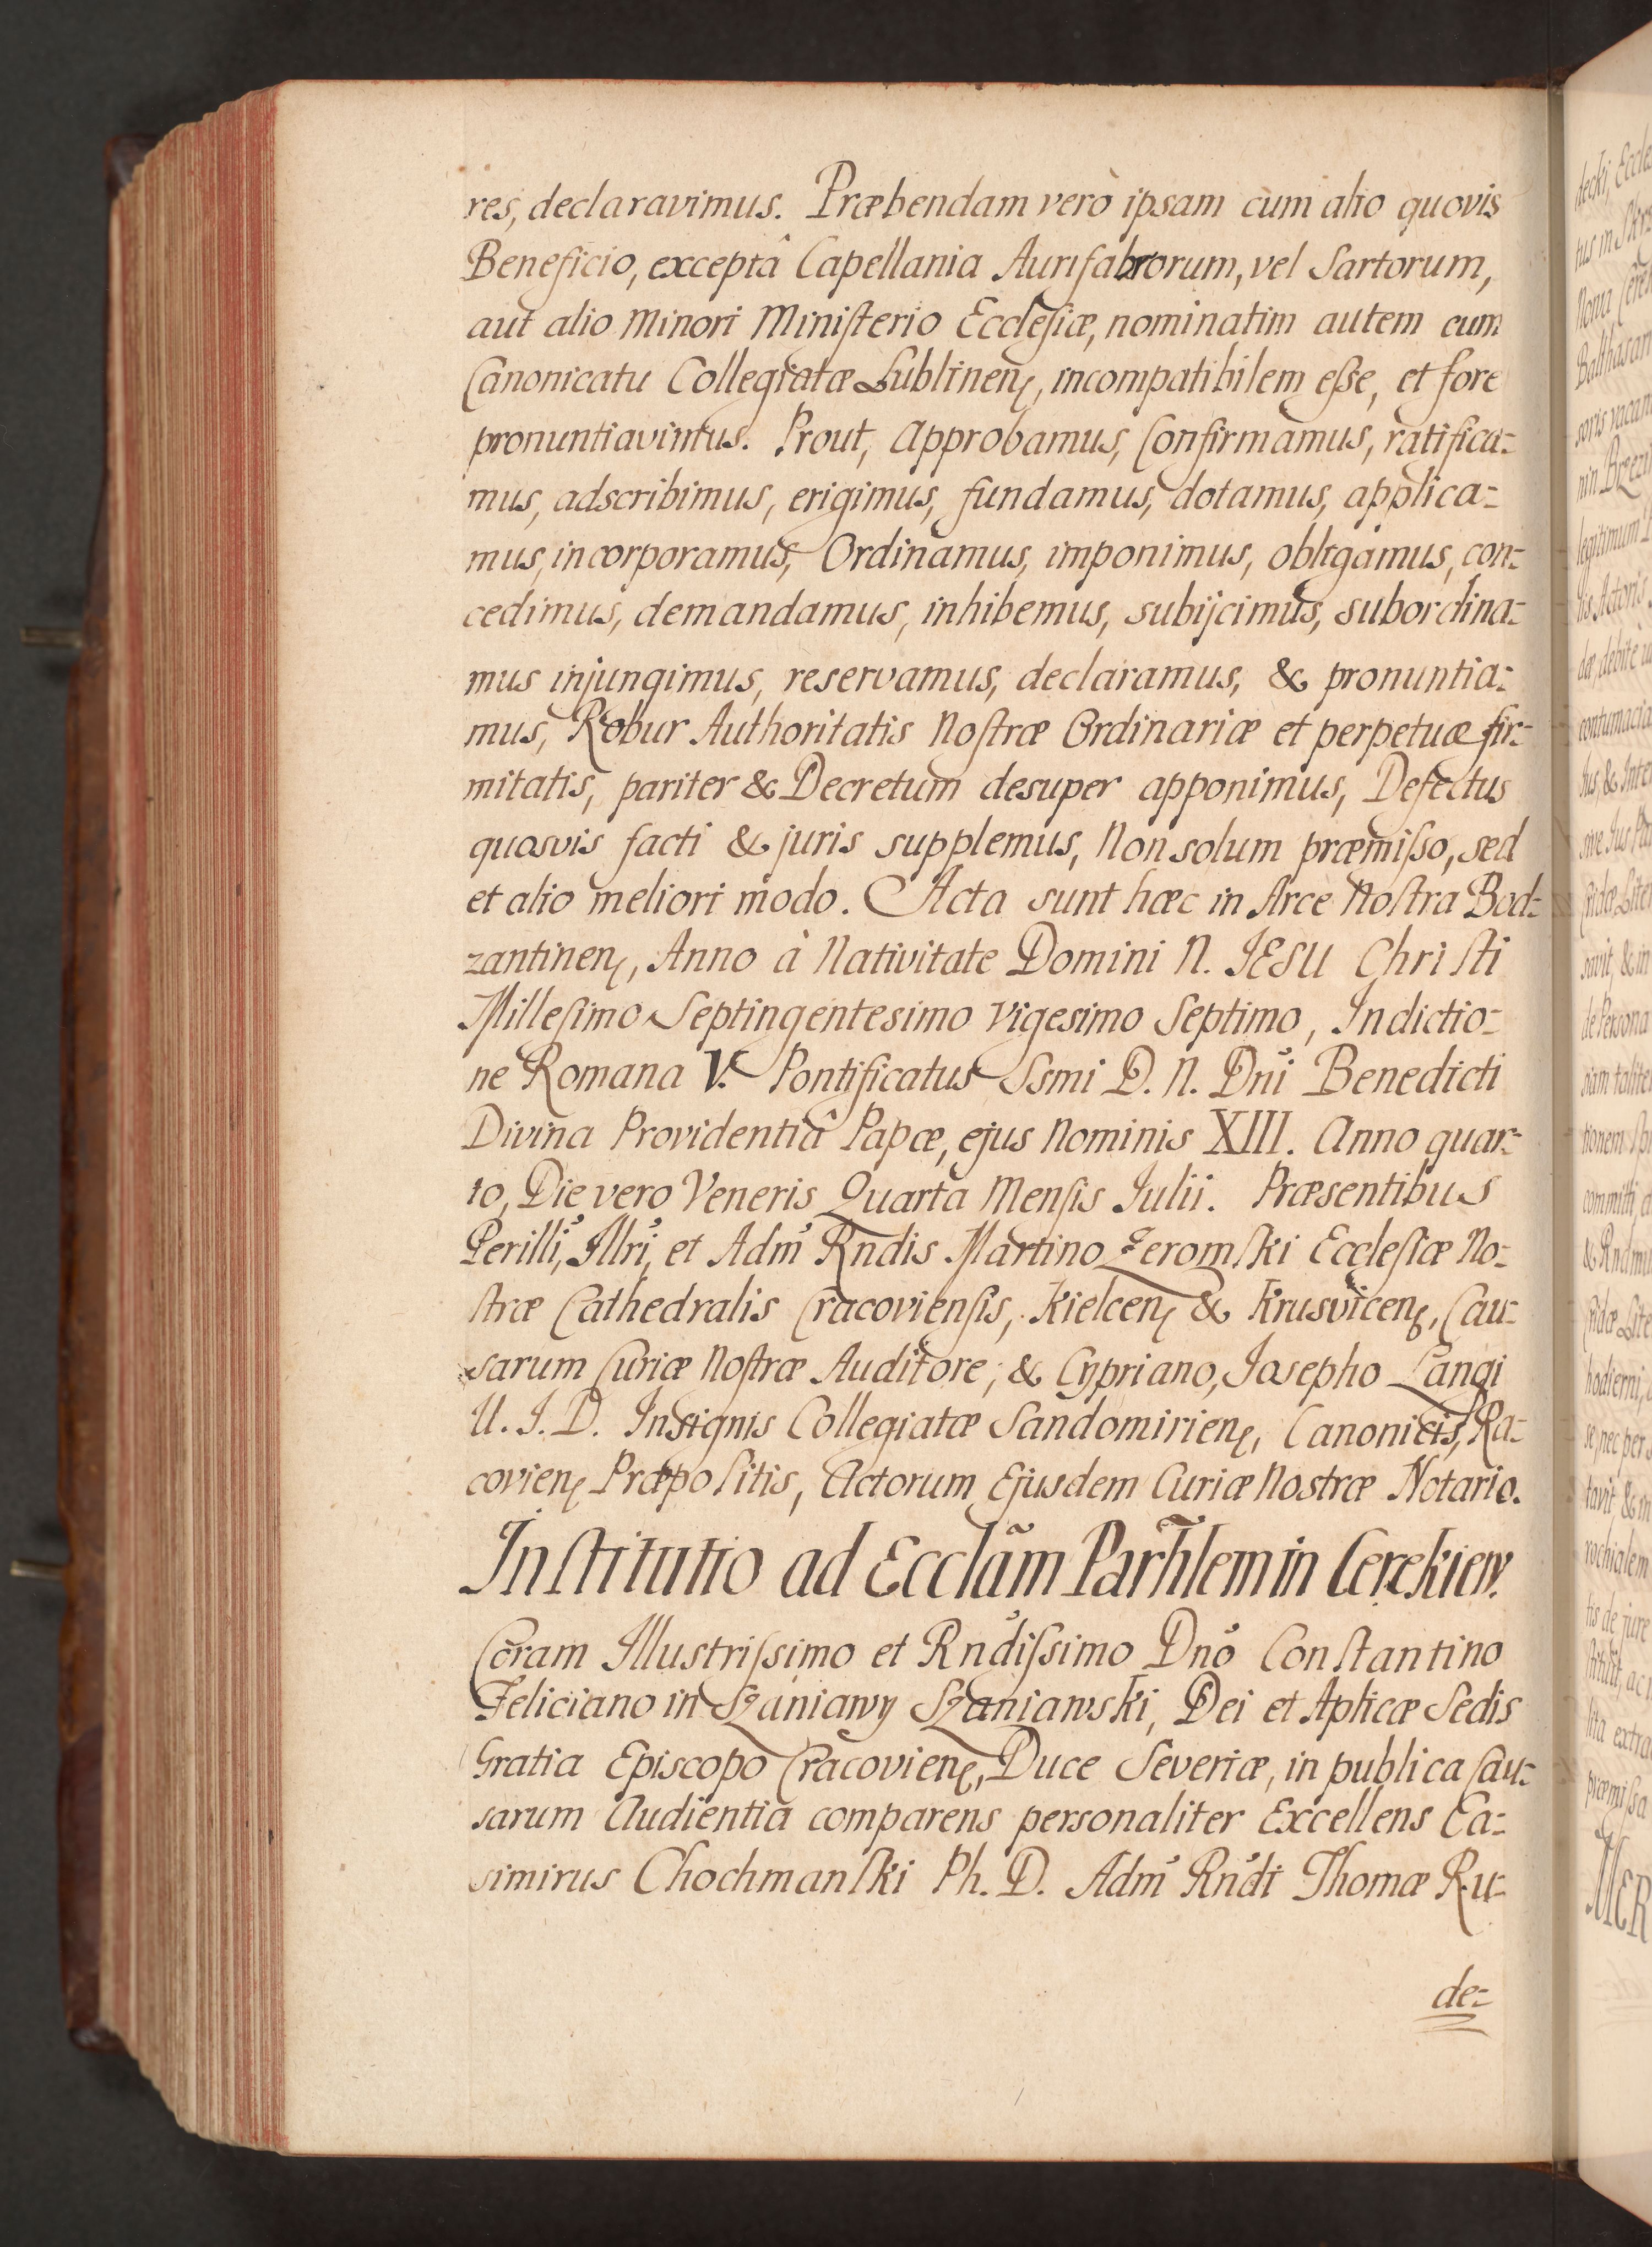 res, declaravimus. Præbendam verò ipsam cum alio quovis
Beneficio, exceptâ Capellania Aurifabrorum, vel Sartorum,
aut alio Minori Ministerio Ecclesiæ, nominatim autem cum
Canonicatu Collegiatæ Lublinen, incompatibilem esse, et fore
pronuntiavimus. Prout, Approbamus, Confirmamus, ratifica=
mus, adscribimus, erigimus, fundamus, dotamus, applica=
mus, incorporamus, Ordinamus, imponimus, obligamus, con=
cedimus, demandamus, inhibemus, subijcimus, subordina=
mus injungimus, reservamus, declaramus, & pronuntia=
mus, Robur Authoritatis Nostræ Ordinariæ et perpetuæ fir=
mitatis, pariter & Decretum desuper apponimus, Defectus
quosvis facti & juris supplemus, Non solum præmisso, sed
et alio meliori modo. Acta sunt hæc in Arce Nostra Bod=
zantinen, Anno à Nativitate Domini N. JESU Christi
Millesimo Septingentesimo Vigesimo Septimo, Indictio=
ne Romana V. Pontificatus Ssmi D. N. Dni Benedicti
Divina Providentiâ Papæ, ejus Nominis XIII. Anno quar=
to, Die vero Veneris Quarta Mensis Julii. Præsentibus
Perilli, Illri, et Adm Rndis Martino Zeromski Ecclesiæ No=
stræ Cathedralis Cracoviensis, Kielcen & Krusvicen, Cau=
sarum Curiæ Nostræ Auditore, & Cypriano, Josepho Langi
U. J. D. Insignis Collegiatæ Sandomirien, Canonicis, Ra=
covien Præpositis, Actorum Ejusdem Curiæ Nostræ Notario.
Institutio ad Ecclãm Parhlem in Cerekiew.
Coram Illustrissimo et Rndissimo Dno Constantino
Feliciano in Szaniawy Szaniawski, Dei et Aplicæ Sedis
Gratia Episcopo Cracovien, Duce Severiæ, in publica Cau=
sarum Audientia comparens personaliter Excellens Ca=
simirus Chochmanski Ph. D. Adm Rndi Thomæ Ru=
de=